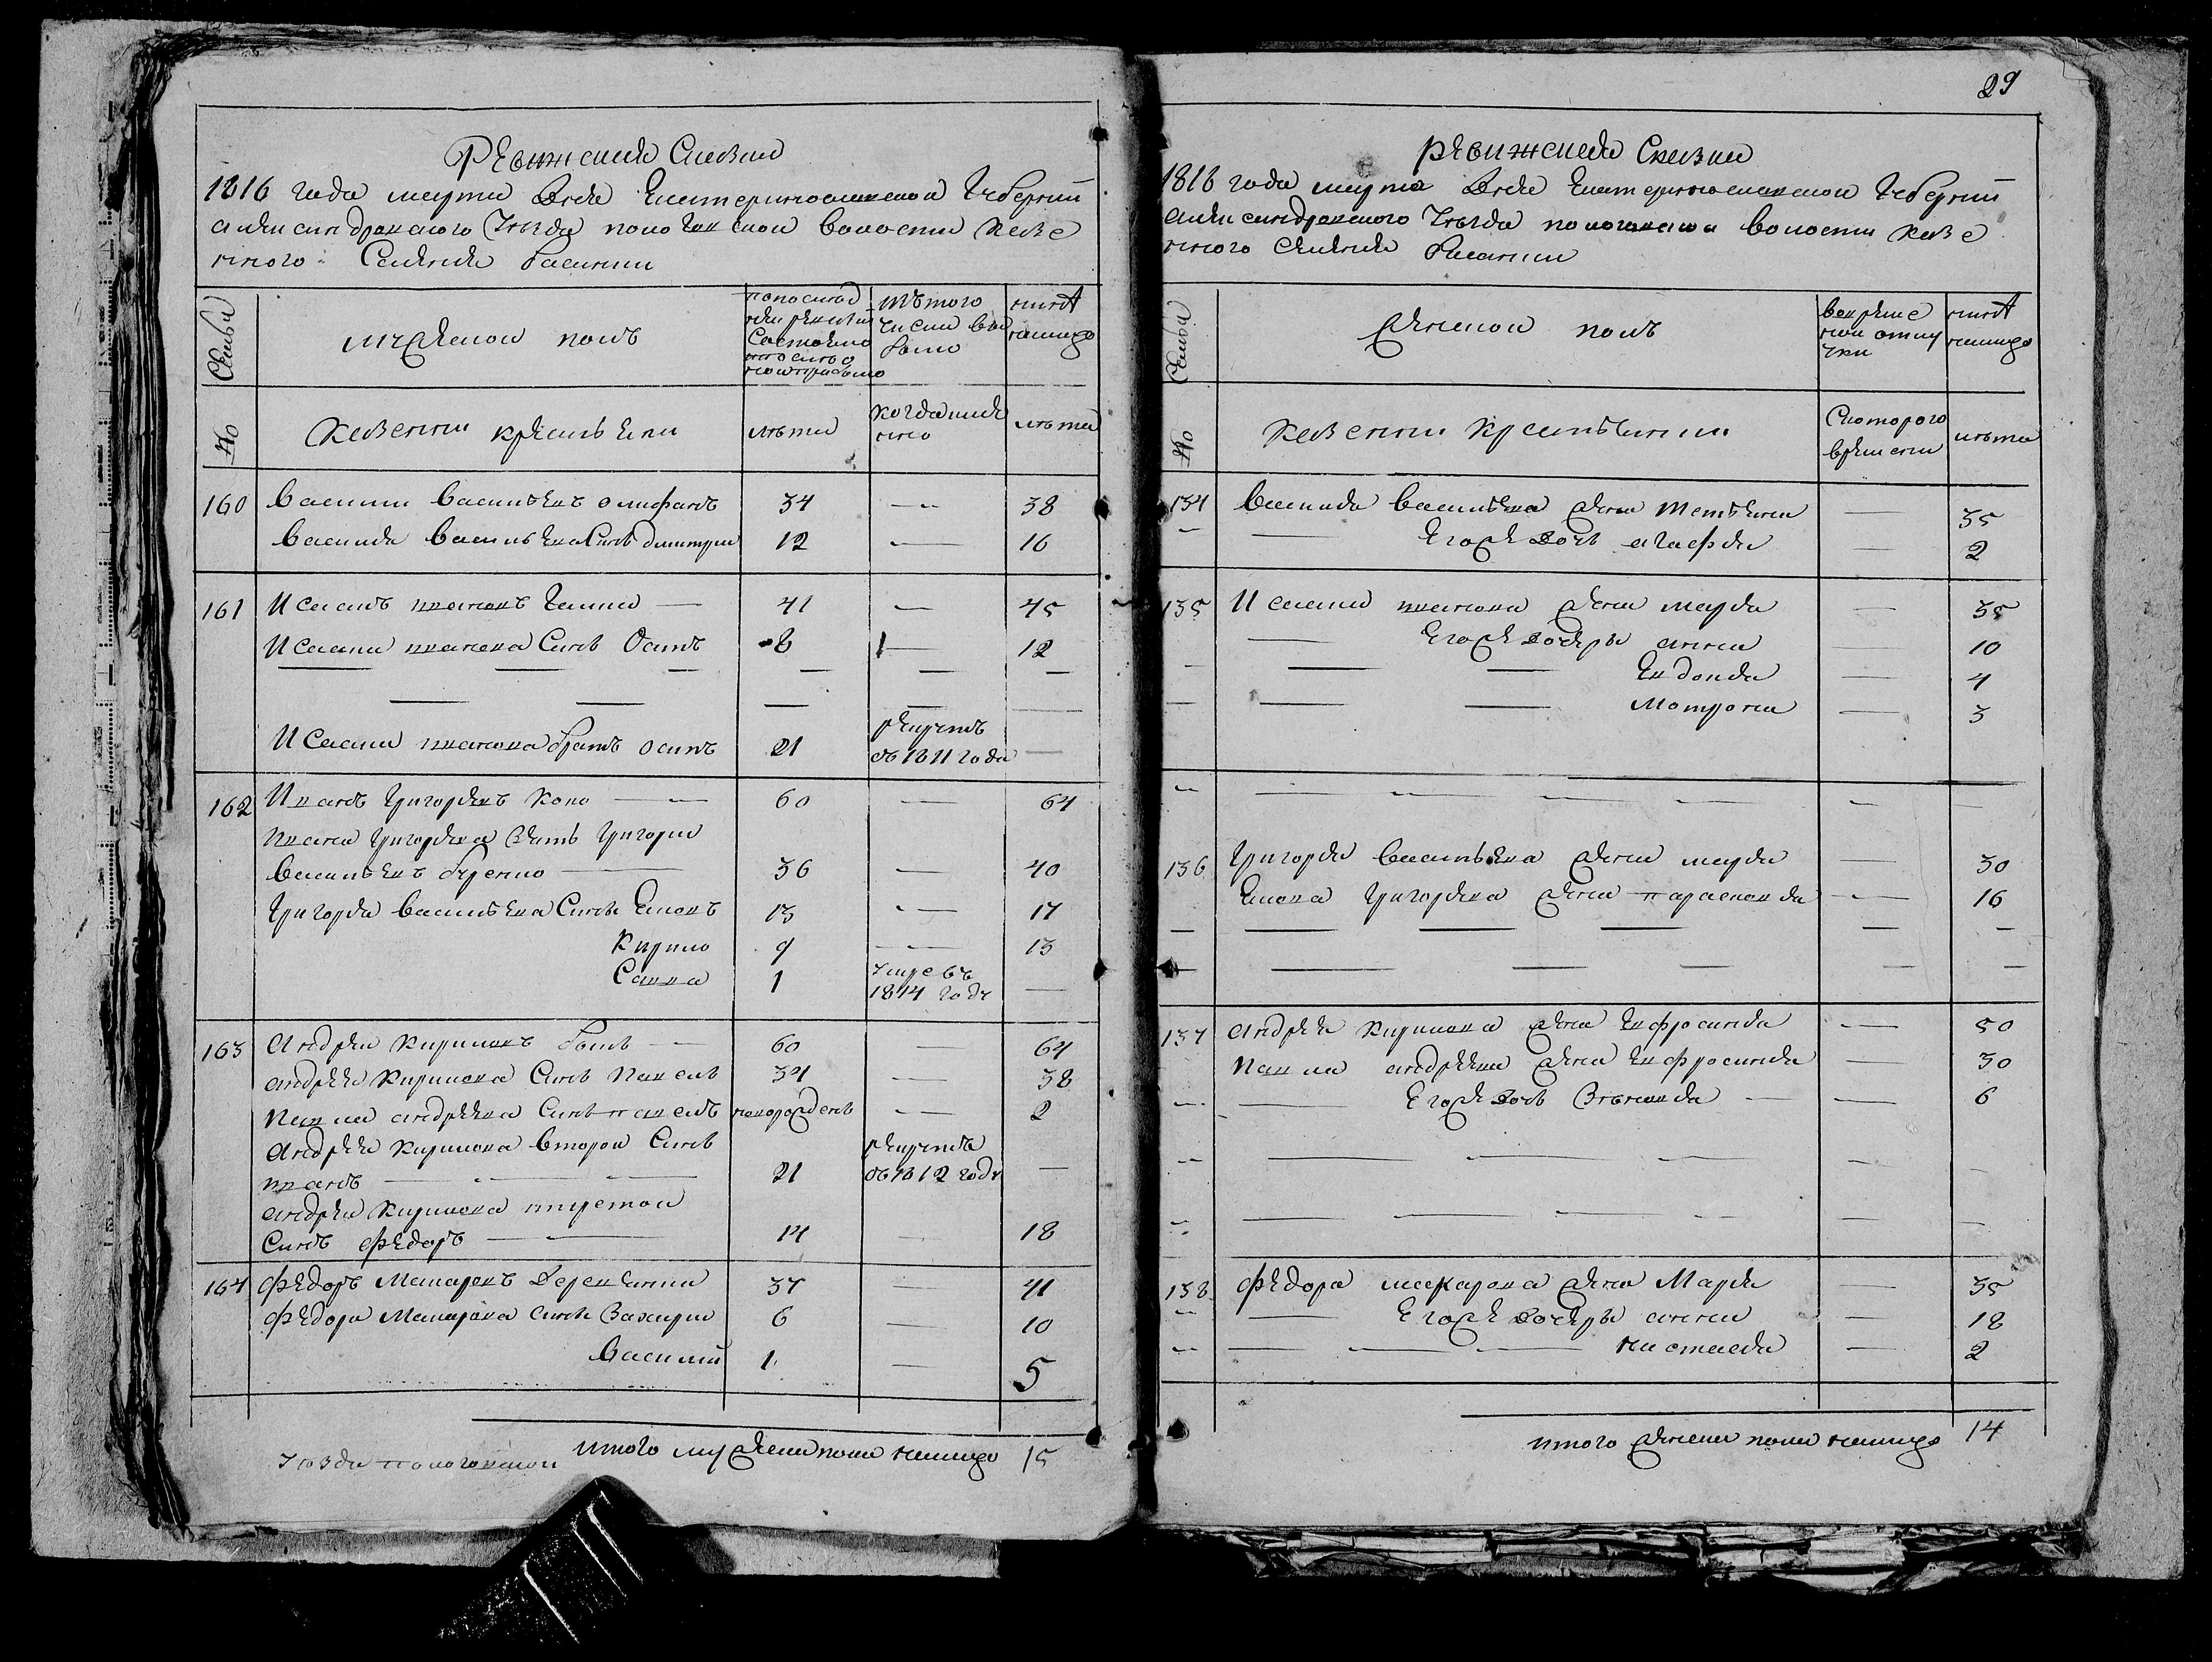 29
Ревижская Сказка
1816 года марта дня Екатеринославской Губерний
александровского Уезда пологовской волости казе
нного Селения басани
Семьи
мужеской полъ
попослед
ней ревизий
Состояло
и после
того прибыло
изтого
числа вы
было
ныне
налицо
№
Казенни крестьяни
лета
когда имя
нно
лета
160 Василии Васильевъ 34 — 38
Василия Васильева Синъ дмитрии 12 — 16
161 Исаакъ ивановъ 41 — 45
Исаака иванова Синъ Осипъ 8 — 12
Исаака иванова братъ осипъ 21 рекрутъ
въ 1811 года —
162 Иванъ Григорьевъ Копо — 60 — 64
ивана Григорьева Зять Григории
Васильевъ — 36 — 40
Григория Васильева Сини Емонъ 13 — 17
Кирило 9 — 13
Савва 1 умре въ
1814 году —
163 андреи Кириловъ — 60 — 64
андрея Кирилова Синъ павелъ 34 — 38
павла андреева Синъ павелъ новорожденъ — 2
андрея Кирилова второи Синъ
иванъ — 21 рекрутъ
въ 1812 году —
андрея Кирилова третои
Синъ федоръ — 14 — 18
164 федоръ Макаровъ 37 — 41
федора Макарова Сини Захарии 6 — 10
Василий 1 — 5
итого мужеска пола налицо 15
Уезда пологовской
Ревижская Сказка
1816 года марта дня Екатеринославской Губерний
александровского Уезда пологовской волости казе
нного Селения басани
Семьи
женской полъ
вовреме
нной отлу
чки
ныне
налицо
№
Казенни крестьянки
Скоторого
времени
лета
134 Василия Васильева жена Тетяна — 35
— Егоже дочь агафия — 2
135 Исаака иванова жена марья — 35
— Егоже дочеры анна — 10
— Евдокия — 4
— Мотрона — 3
136 Григория Васильева жена марья — 30
Емона Григорьева жена парасковья — 16
137 андрея Кирилова жена Ефросинья — 50
павла андреева жена Ефросинья — 30
— Егоже дочь Зеновья — 6
138 федора макарова жена Марья — 35
— Егоже дочеры анна — 18
— настасья — 2
итого женска пола налицо 14